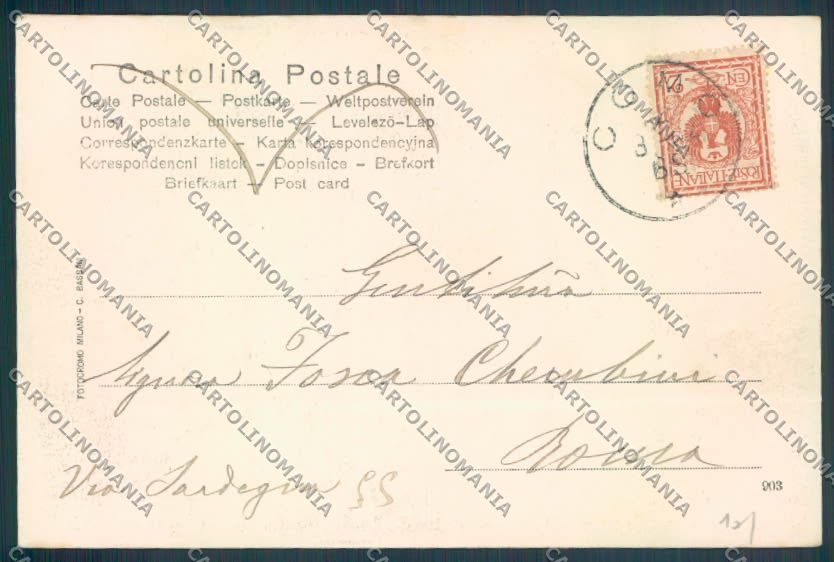 Cartolina Postale
Carte Postale — Postkarte — Weltpostverein
Union postale universelle — Levelezö-Lap
Correspondenzkarte - Karta korespondencyjna
Korespondencni listek - Dopisnice - Brefkort
Briefkaart - Post card
POSTE ITALIANE
FOTOCROMO MILANO - C. BASSANI
Gentilissima
Signora Tosca Cherubini
Roma
Via Sardegna
903
CARTOLINOMANIA